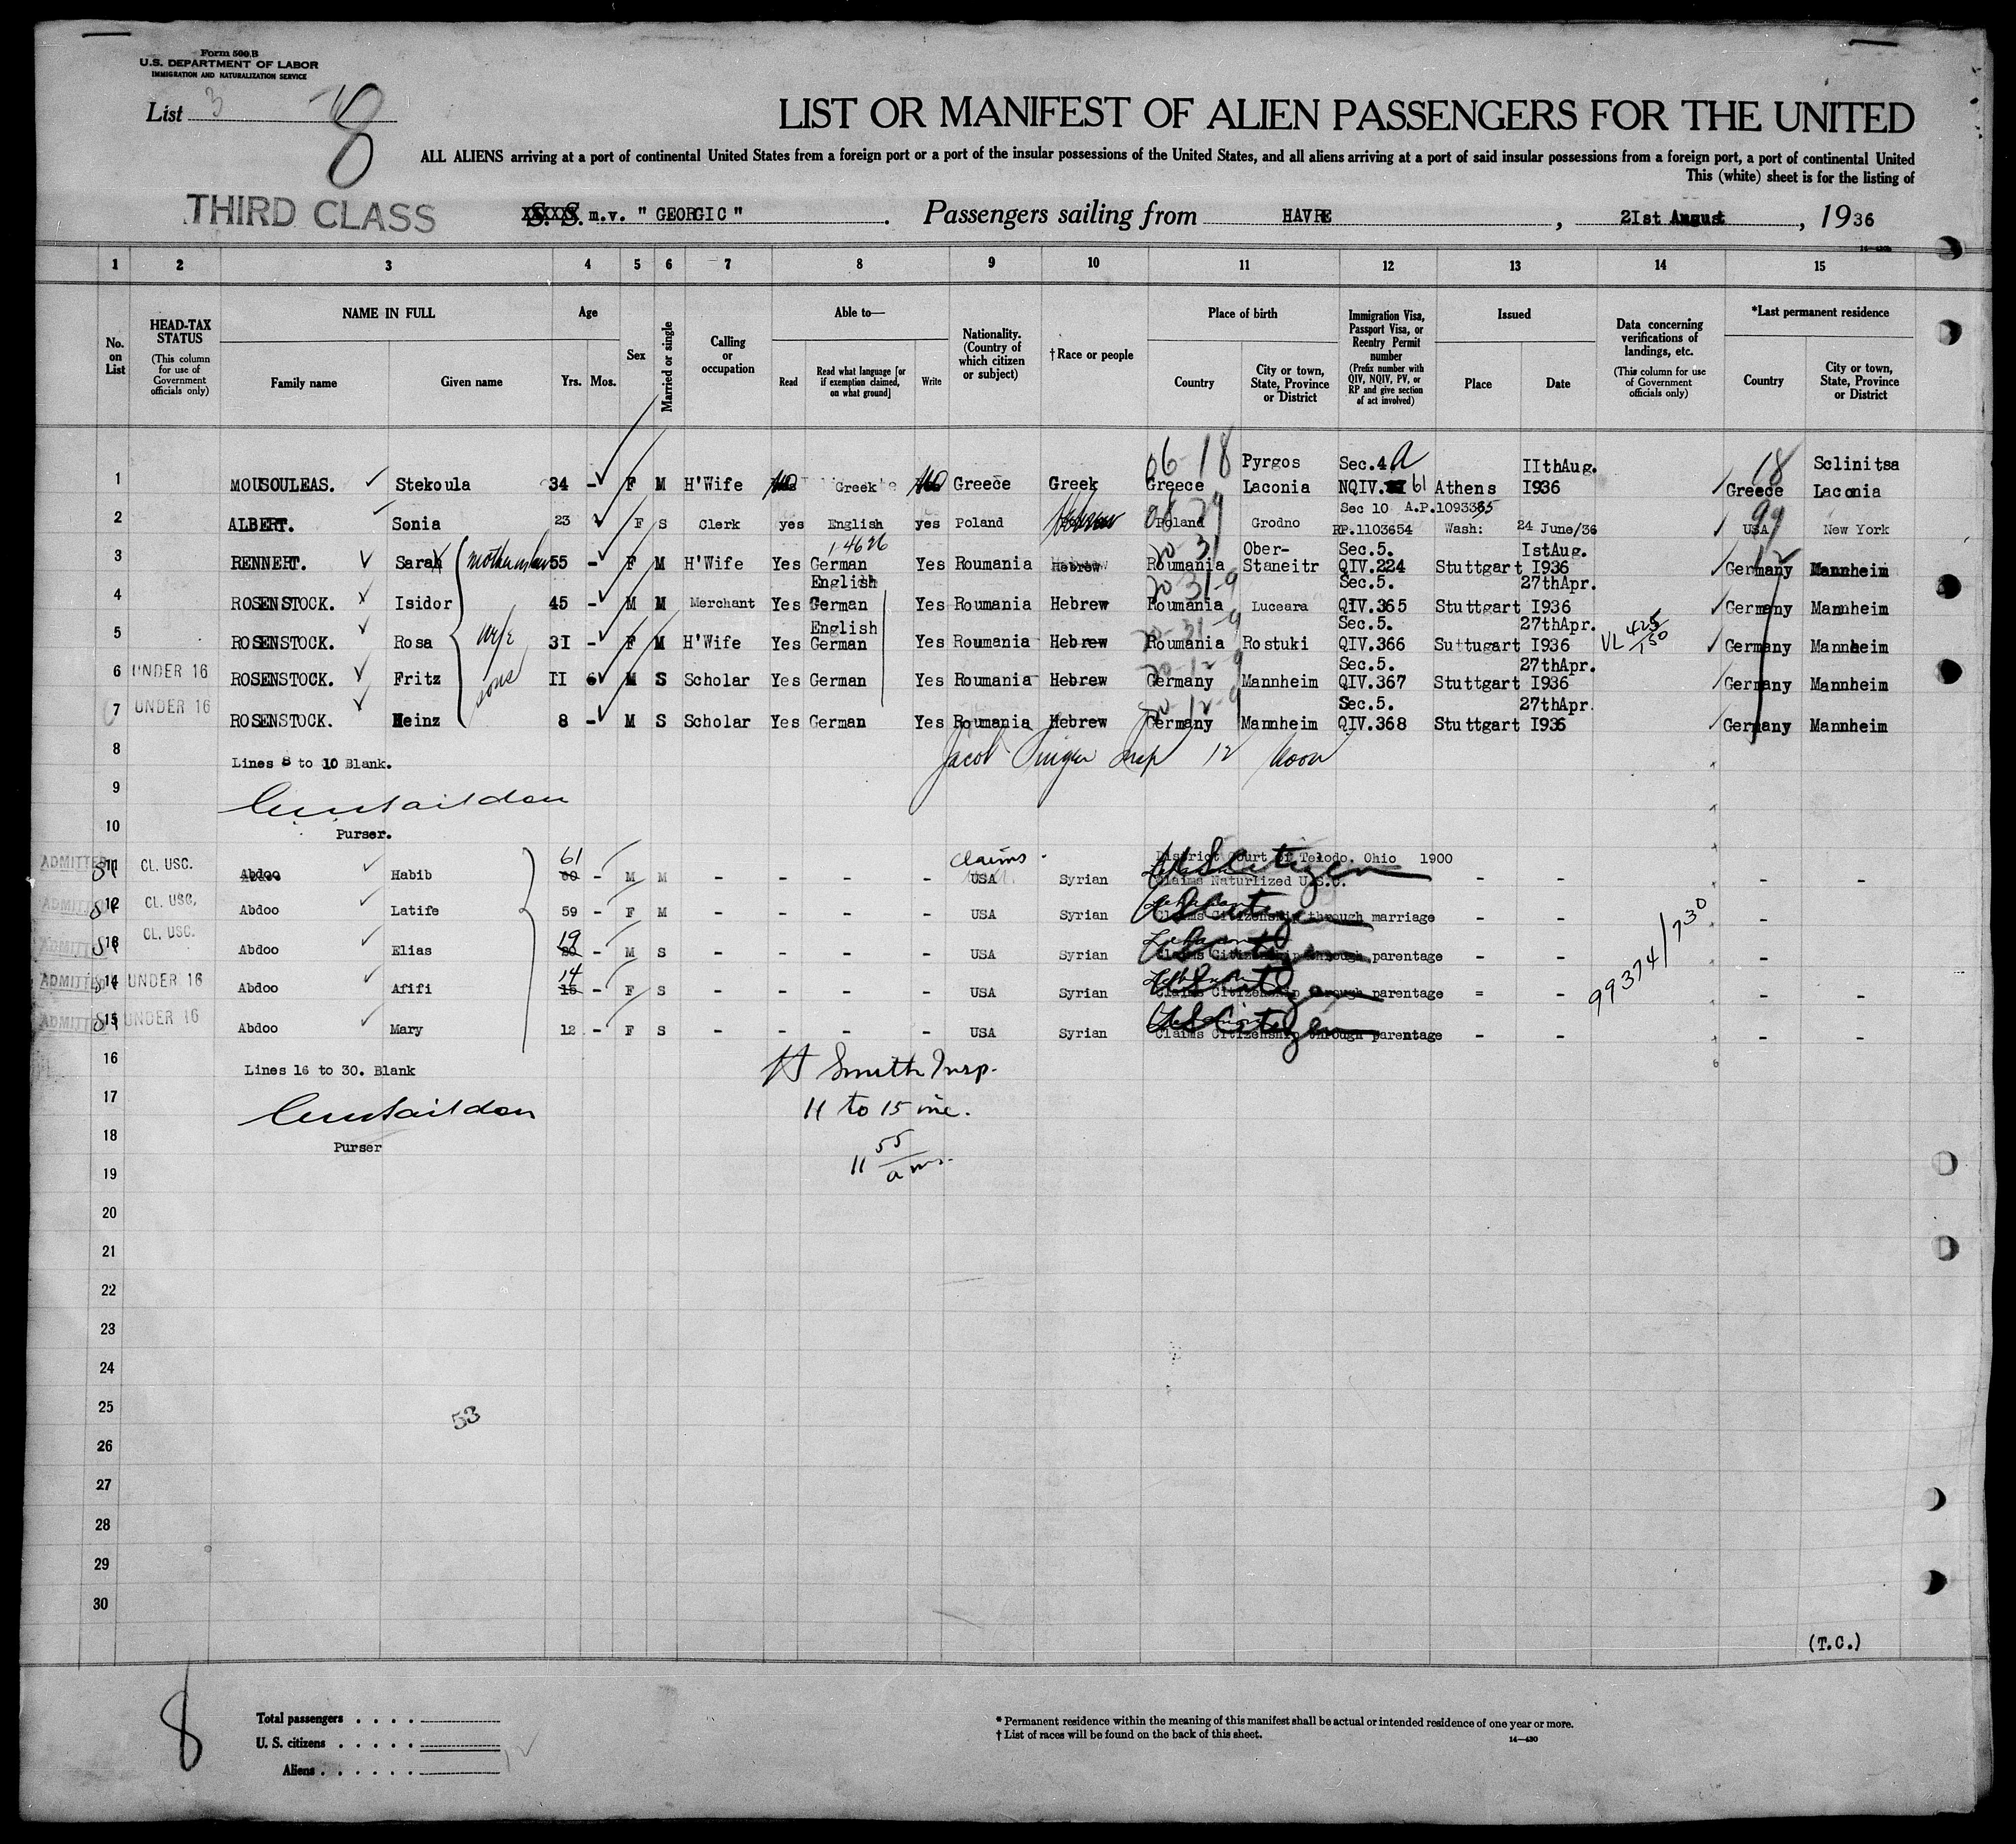 Form 500 B
U.S. DEPARTMENT OF LABOR
IMMIGRATION AND NATURALIZATION SERVICE
List 3
8
LIST OR MANIFEST OF ALIEN PASSENGERS FOR THE UNITED
ALL ALIENS arriving at a port of continental United States from a foreign port or a port of the insular possessions of the United States, and all aliens arriving at a port of said insular possessions from a foreign port, a port of continental United
This (white) sheet is for the listing of
THIRD CLASS
S. S. m.v. " GEORGIC " . Passengers sailing from HAVRE , 2Ist August , 1936
14—430
1 2 3 4 5 6 7 8 9 10 11 12 13 14 15
No. on List
HEAD-TAX STATUS
(This column for use of Government officials only)
NAME IN FULL
Family name Given name
Age
Yrs. Mos.
Sex
Married or single
Calling or occupation
Able to—
Read
Read what language [or if exemption claimed, on what ground]
Write
Nationality. (Country of which citizen or subject)
† Race or people
Place of birth
Country
City or town, State, Province or District
Immigration Visa, Passport Visa, or Reentry Permit number
(Prefix number with QIV, NQIV, PV, or RP and give section of act involved)
Issued
Place Date
Data concerning verifications of landings, etc.
(This column for use of Government officials only)
*Last permanent residence
Country
City or town, State, Province or District
06-18 Pyrgos Sec.4 A IIthAug. 18 Sclinitsa
1 MOUSOULEAS. Stekoula 34 - F M H'Wife No Greek No Greece Greek Greece Laconia NQIV. 61 Athens I936 Greece Laconia
Sec 10 A.P.1093385
2 ALBERT. Sonia 23 F S Clerk yes English yes Poland Hebrew Poland Grodno RP.1103654 Wash: 24 June/36 USA 99 New York
14626 20-31 Ober- Sec.5. IstAug. 12
3 RENNERT. Sarah mother in law 55 - F M H'Wife Yes German Yes Roumania Hebrew Roumania Staneitr QIV.224 Stuttgart I936 Germany Mannheim
English 20-31-9 Sec.5. 27thApr.
4 ROSENSTOCK. Isidor 45 - M M Merchant Yes German Yes Roumania Hebrew Roumania Luceara QIV.365 Stuttgart I936 Germany Mannheim
English 20-31-9 Sec.5. 27thApr.
5 ROSENSTOCK. Rosa wife 3I - F M H'Wife Yes German Yes Roumania Hebrew Roumania Rostuki QIV.366 Suttugart I936 VL 425/150 Germany Mannheim
20-12-9 Sec.5. 27thApr.
6 UNDER 16 ROSENSTOCK. Fritz sons II 6 M S Scholar Yes German Yes Roumania Hebrew Germany Mannheim QIV.367 Stuttgart I936 Germany Mannheim
20-12-9 Sec.5. 27thApr.
7 UNDER 16 ROSENSTOCK. Heinz 8 - M S Scholar Yes German Yes Roumania Hebrew Germany Mannheim QIV.368 Stuttgart I936 Germany Mannheim
8 Lines 8 to 10 Blank. Jacob Singer Insp 12 Noon
9
10 Purser.
61 claims District Court of Teledo. Ohio 1900
ADMITTED 11 CL. USC. Abdoo Habib 60 - M M - - - - USA Syrian Claims Naturlized U.S.C. US Citizen - - - -
ADMITTED 12 CL. USC. Abdoo Latife 59 - F M - - - - USA Syrian Claims Citizenship through marriage US Citizen - - - -
19
ADMITTED 13 CL. USC. Abdoo Elias 20 - M S - - - - USA Syrian Claims Citizenship through parentage US Citizen - - - -
14
ADMITTED 14 UNDER 16 Abdoo Afifi 15 - F S - - - - USA Syrian Claims Citizenship through parentage US Citizen = - 99374/730 - -
ADMITTED 15 UNDER 16 Abdoo Mary 12 - F S - - - - USA Syrian Claims Citizenship through parentage US Citizen - - - -
16 Lines 16 to 30. Blank H Smith Insp.
17 11 to 15 inc.
18 Purser 11 55/am.
19
20
21
22
23
24
25 53
26
27
28
29
30
(T.C.)
8
Total passengers
U. S. citizens
Aliens
* Permanent residence within the meaning of this manifest shall be actual or intended residence of one year or more.
† List of races will be found on the back of this sheet.
14—430